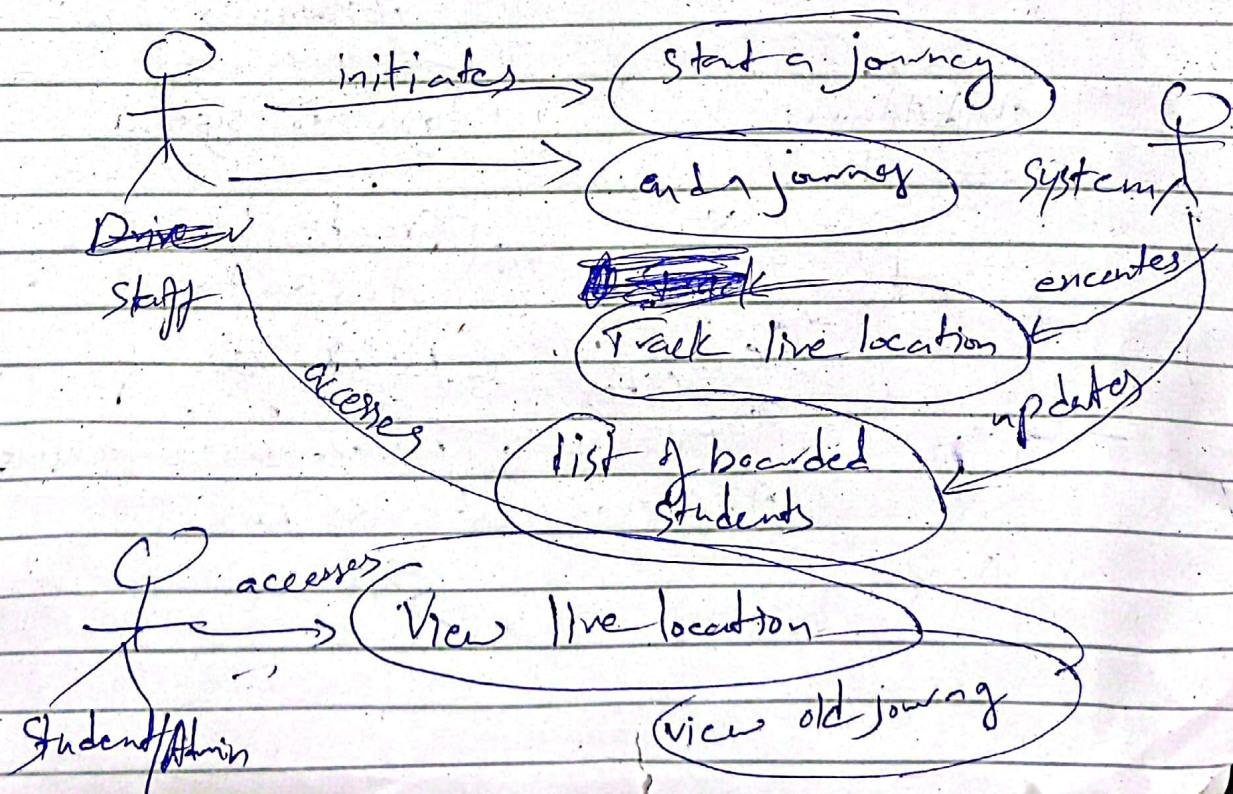 initiates
Start a journey
end a journey
System
Driver
Staff
executes
Track live location
accesses
updates
list of boarded
students
accesses
View live location
view old journey
Student/Admin